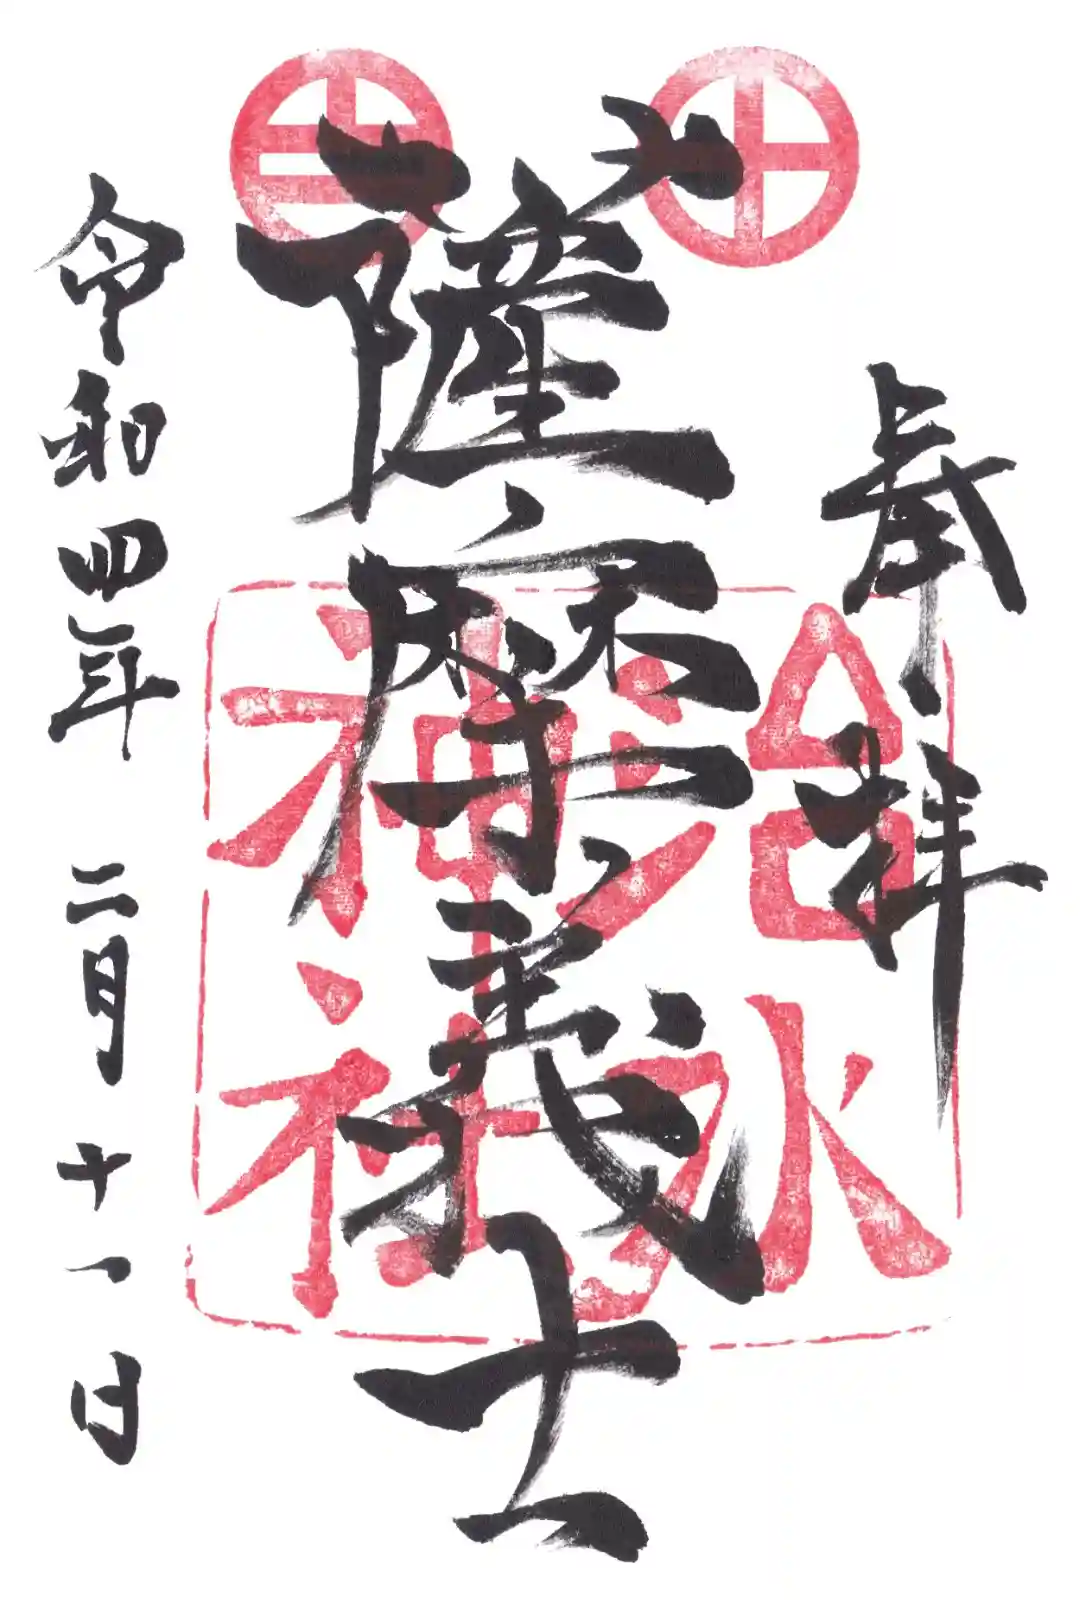 奉拝
薩摩義士
治水神社
令和四年 二月 十一日